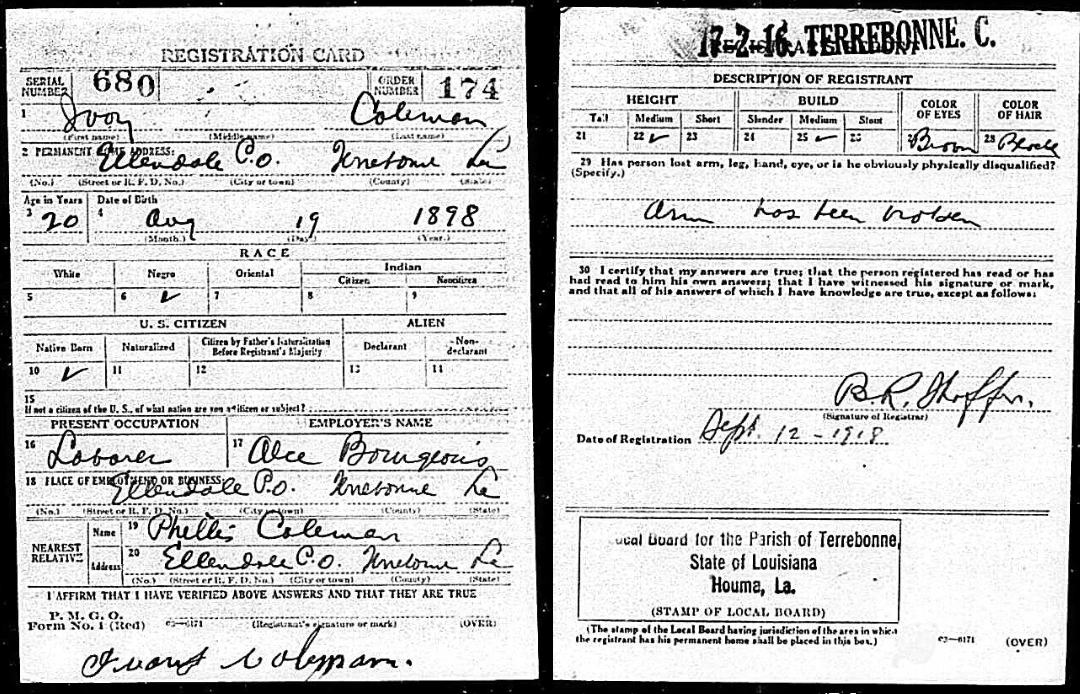 REGISTRATION CARD
SERIAL NUMBER 680 ORDER NUMBER 174
1 Ivory Coleman
(First name) (Middle name) (Last name)
2 PERMANENT HOME ADDRESS:
Ellendale P.O. Terrebonne La
(No.) (Street or R. F. D. No.) (City or town) (County) (State)
Age in Years Date of Birth
3 20 4 Aug 19 1898
(Month.) (Day.) (Year.)
RACE
White Negro Oriental Indian
Citizen Noncitizen
5 6 ✓ 7 8 9
U. S. CITIZEN ALIEN
Native Born Naturalized Citizen by Father's Naturalization Before Registrant's Majority Declarant Non-declarant
10 ✓ 11 12 13 14
15
If not a citizen of the U. S., of what nation are you a citizen or subject?
PRESENT OCCUPATION EMPLOYER'S NAME
16 Laborer 17 Alce Bourgeois
18 PLACE OF EMPLOYMENT OR BUSINESS:
Ellendale P.O. Terrebonne La
(No.) (Street or R. F. D. No.) (City or town) (County) (State)
NEAREST RELATIVE Name 19 Phellis Coleman
Address 20 Ellendale P.O. Terrebonne La
(No.) (Street or R. F. D. No.) (City or town) (County) (State)
I AFFIRM THAT I HAVE VERIFIED ABOVE ANSWERS AND THAT THEY ARE TRUE
P. M. G. O.
Form No. 1 (Red) c3—6171 (Registrant's signature or mark) (OVER)
Coleman.
17-2-16. TERREBONNE. C.
REGISTRAR'S REPORT
DESCRIPTION OF REGISTRANT
HEIGHT BUILD COLOR OF EYES COLOR OF HAIR
Tall Medium Short Slender Medium Stout
21 22 ✓ 23 24 25 ✓ 26 27 Brown 28 Black
29 Has person lost arm, leg, hand, eye, or is he obviously physically disqualified?
(Specify.)
Arm has been broken
30 I certify that my answers are true; that the person registered has read or has
had read to him his own answers; that I have witnessed his signature or mark,
and that all of his answers of which I have knowledge are true, except as follows:
B.R.
(Signature of Registrar)
Date of Registration Sept. 12 - 1918
Local Board for the Parish of Terrebonne,
State of Louisiana
Houma, La.
(STAMP OF LOCAL BOARD)
(The stamp of the Local Board having jurisdiction of the area in which
the registrant has his permanent home shall be placed in this box.)
c3—6171 (OVER)